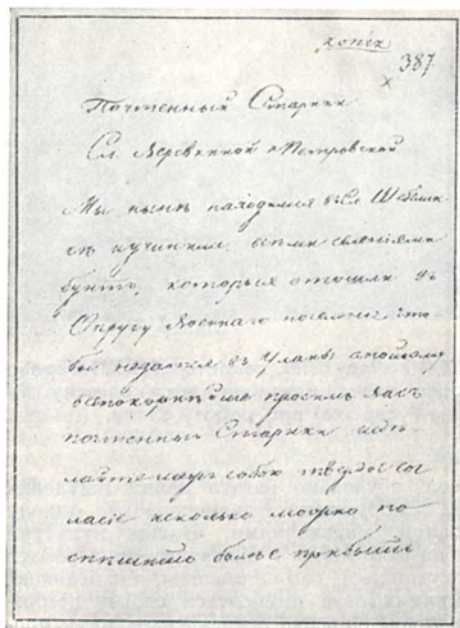 копия
387
Почтенные Старики
Сл. Деревянной и Петровской
Мы нынѣ находимся въ сл. Шебелинке
и учинили всеми селеніями
бунтъ, которыя отошли въ
Округу Военнаго поселенія что
бы податся въ Уланы
всепокорнѣйше просимъ Васъ
почтенныя Старики
лайте между собою твердое сог
ласіе несколько можно по
спешить более прибыть